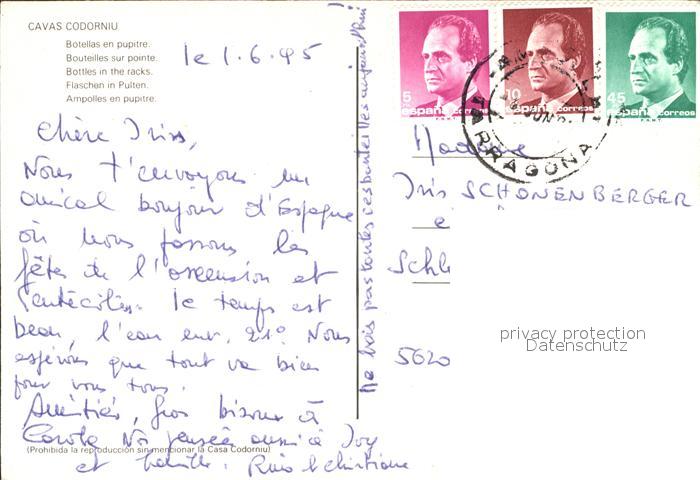 CAVAS CODORNIU
Botellas en pupitre.
Bouteilles sur pointe.
Bottles in the racks.
Flaschen in Pulten.
Ampolles en pupitre.
le 1.6.95
Chère Iris,
Nous t'envoyons un
amical bonjour d'Espagne
où nous passons les
fêtes de l'ascension et
Pentecôtes. le temps est
beau, l'eau env. 21°. Nous
espérons que tout va bien
pour vous tous.
Amitiés, gros bisous à
Carole
pensée aussi à Ivy
et famille.
(Prohibida la reproducción sin mencionar la Casa Codorniu)
Ne bois pas toutes ces bouteilles aujourd'hui
5 españa correos
10 españa correos
45 españa correos
TARRAGONA
JUN
Madame
Iris SCHÖNENBERGER
e
Schl
5620
privacy protection
Datenschutz